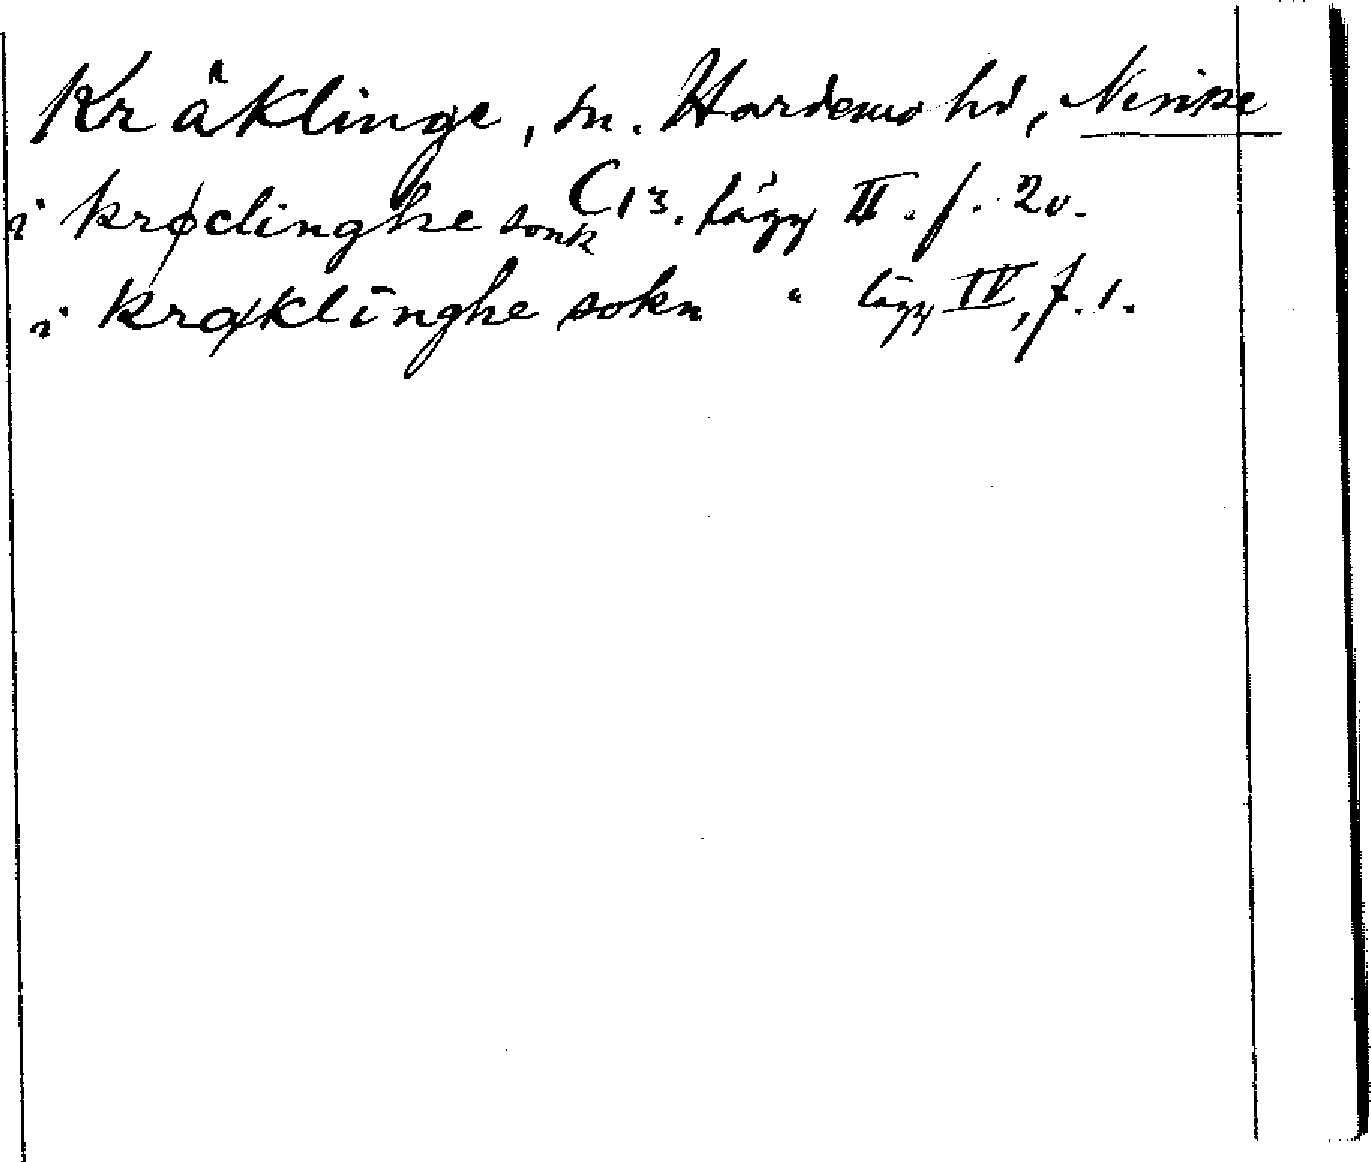 Kräklinge, sn. Hardemo hd, Nerike
i krøclinghe sonk C 13. lägg II. f. 2v.
i krøklinghe sokn " lägg IV, f. 1.